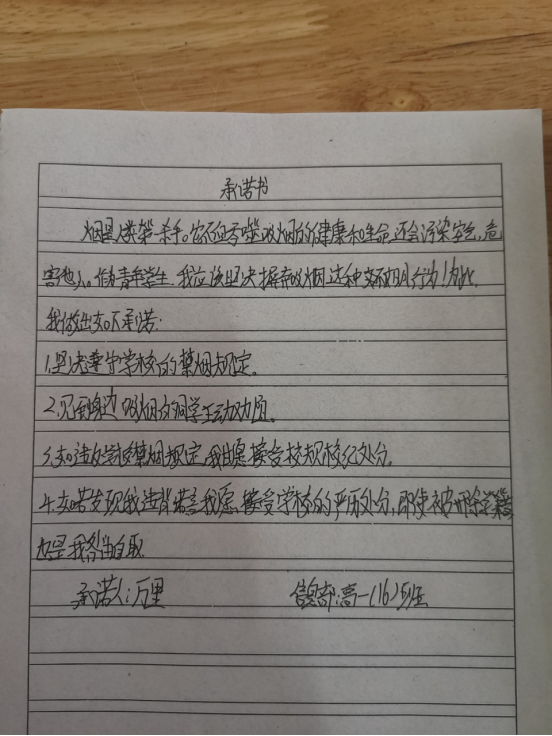 承诺书
烟是人类第一杀手。它不但吞噬吸烟者的健康和生命,还会污染空气,危
害他人。作为青年学生,我应该坚决摒弃吸烟这种不文明行为!为此,
我做出如下承诺:
1.坚决遵守学校的禁烟规定。
2.见到身边吸烟的同学主动劝阻。
3.如违反学校禁烟规定,我自愿接受校规校纪处分。
4.如若发现我违背诺言我愿接受学校的严厉处分,即使被开除学籍
也是我咎由自取.
承诺人:万里 高一(16)班